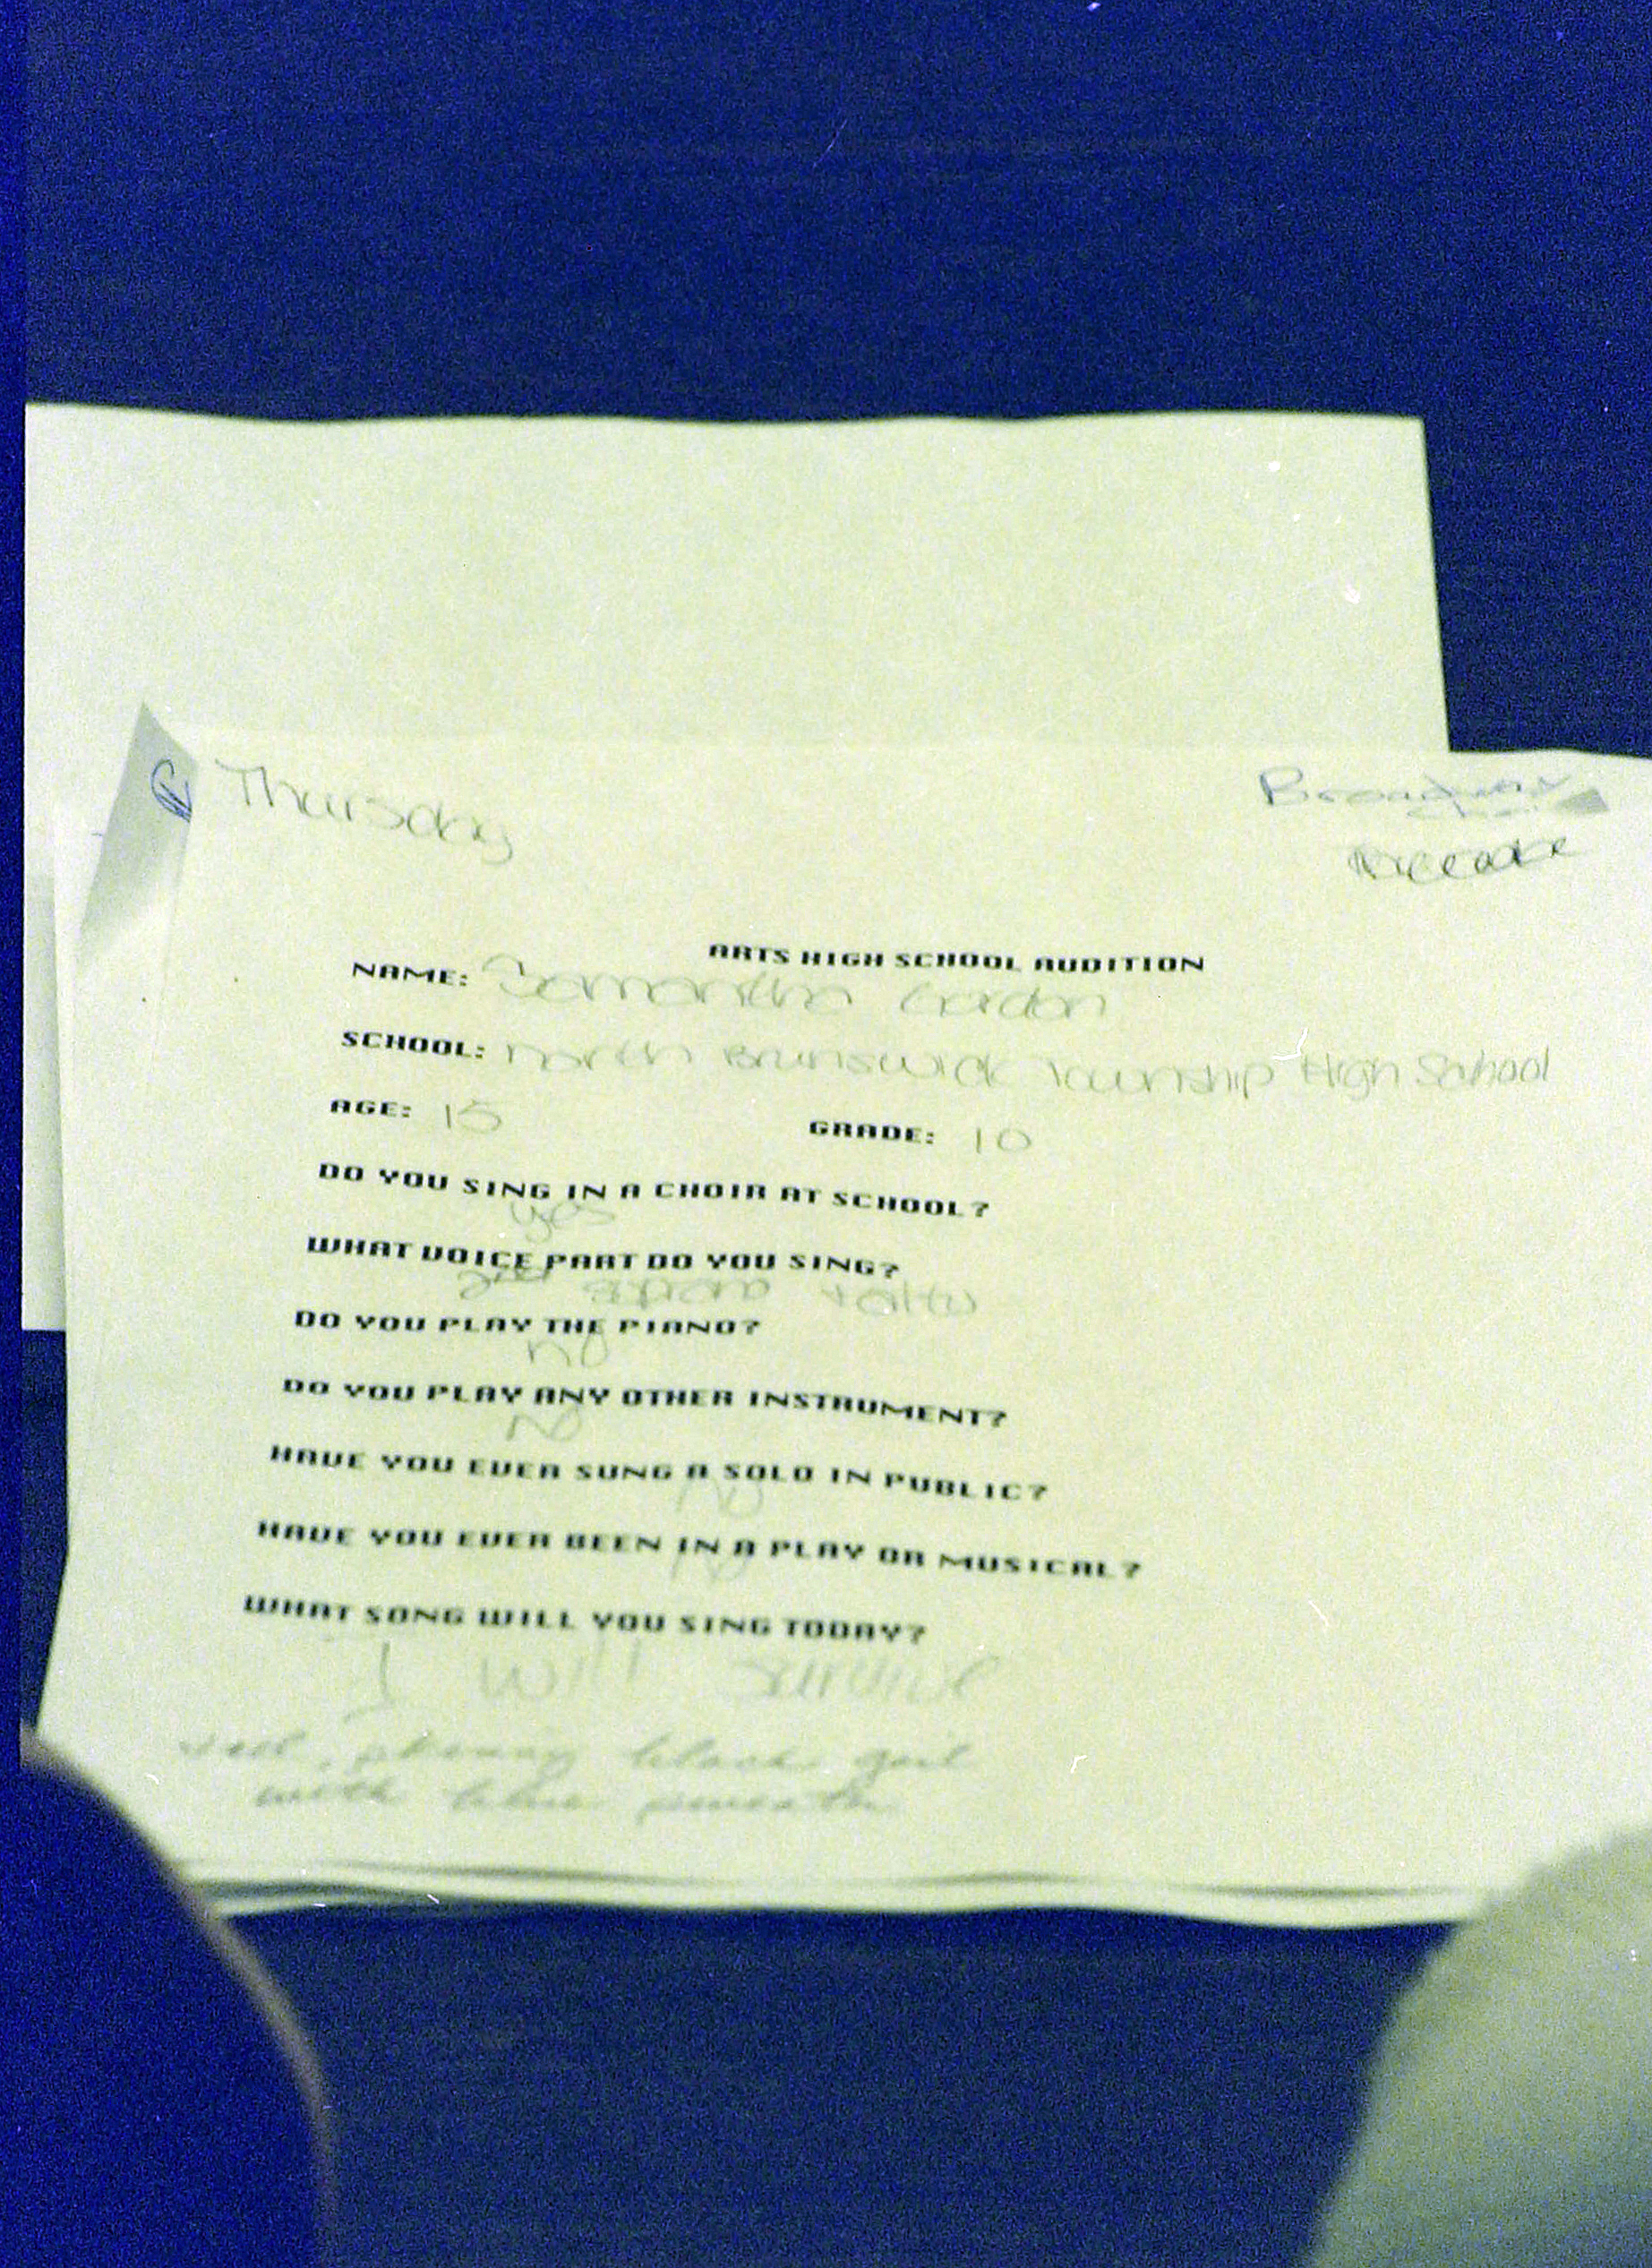 Thursday
ARTS HIGH SCHOOL AUDITION
NAME: Samantha Gordon
SCHOOL: North Brunswick Township High School
AGE: 15 GRADE: 10
DO YOU SING IN A CHOIR AT SCHOOL?
yes
WHAT VOICE PART DO YOU SING?
DO YOU PLAY THE PIANO?
no
DO YOU PLAY ANY OTHER INSTRUMENT?
No
HAVE YOU EVER SUNG A SOLO IN PUBLIC?
No
HAVE YOU EVER BEEN IN A PLAY OR MUSICAL?
No
WHAT SONG WILL YOU SING TODAY?
I Will Survive
black girl
with blue sweater